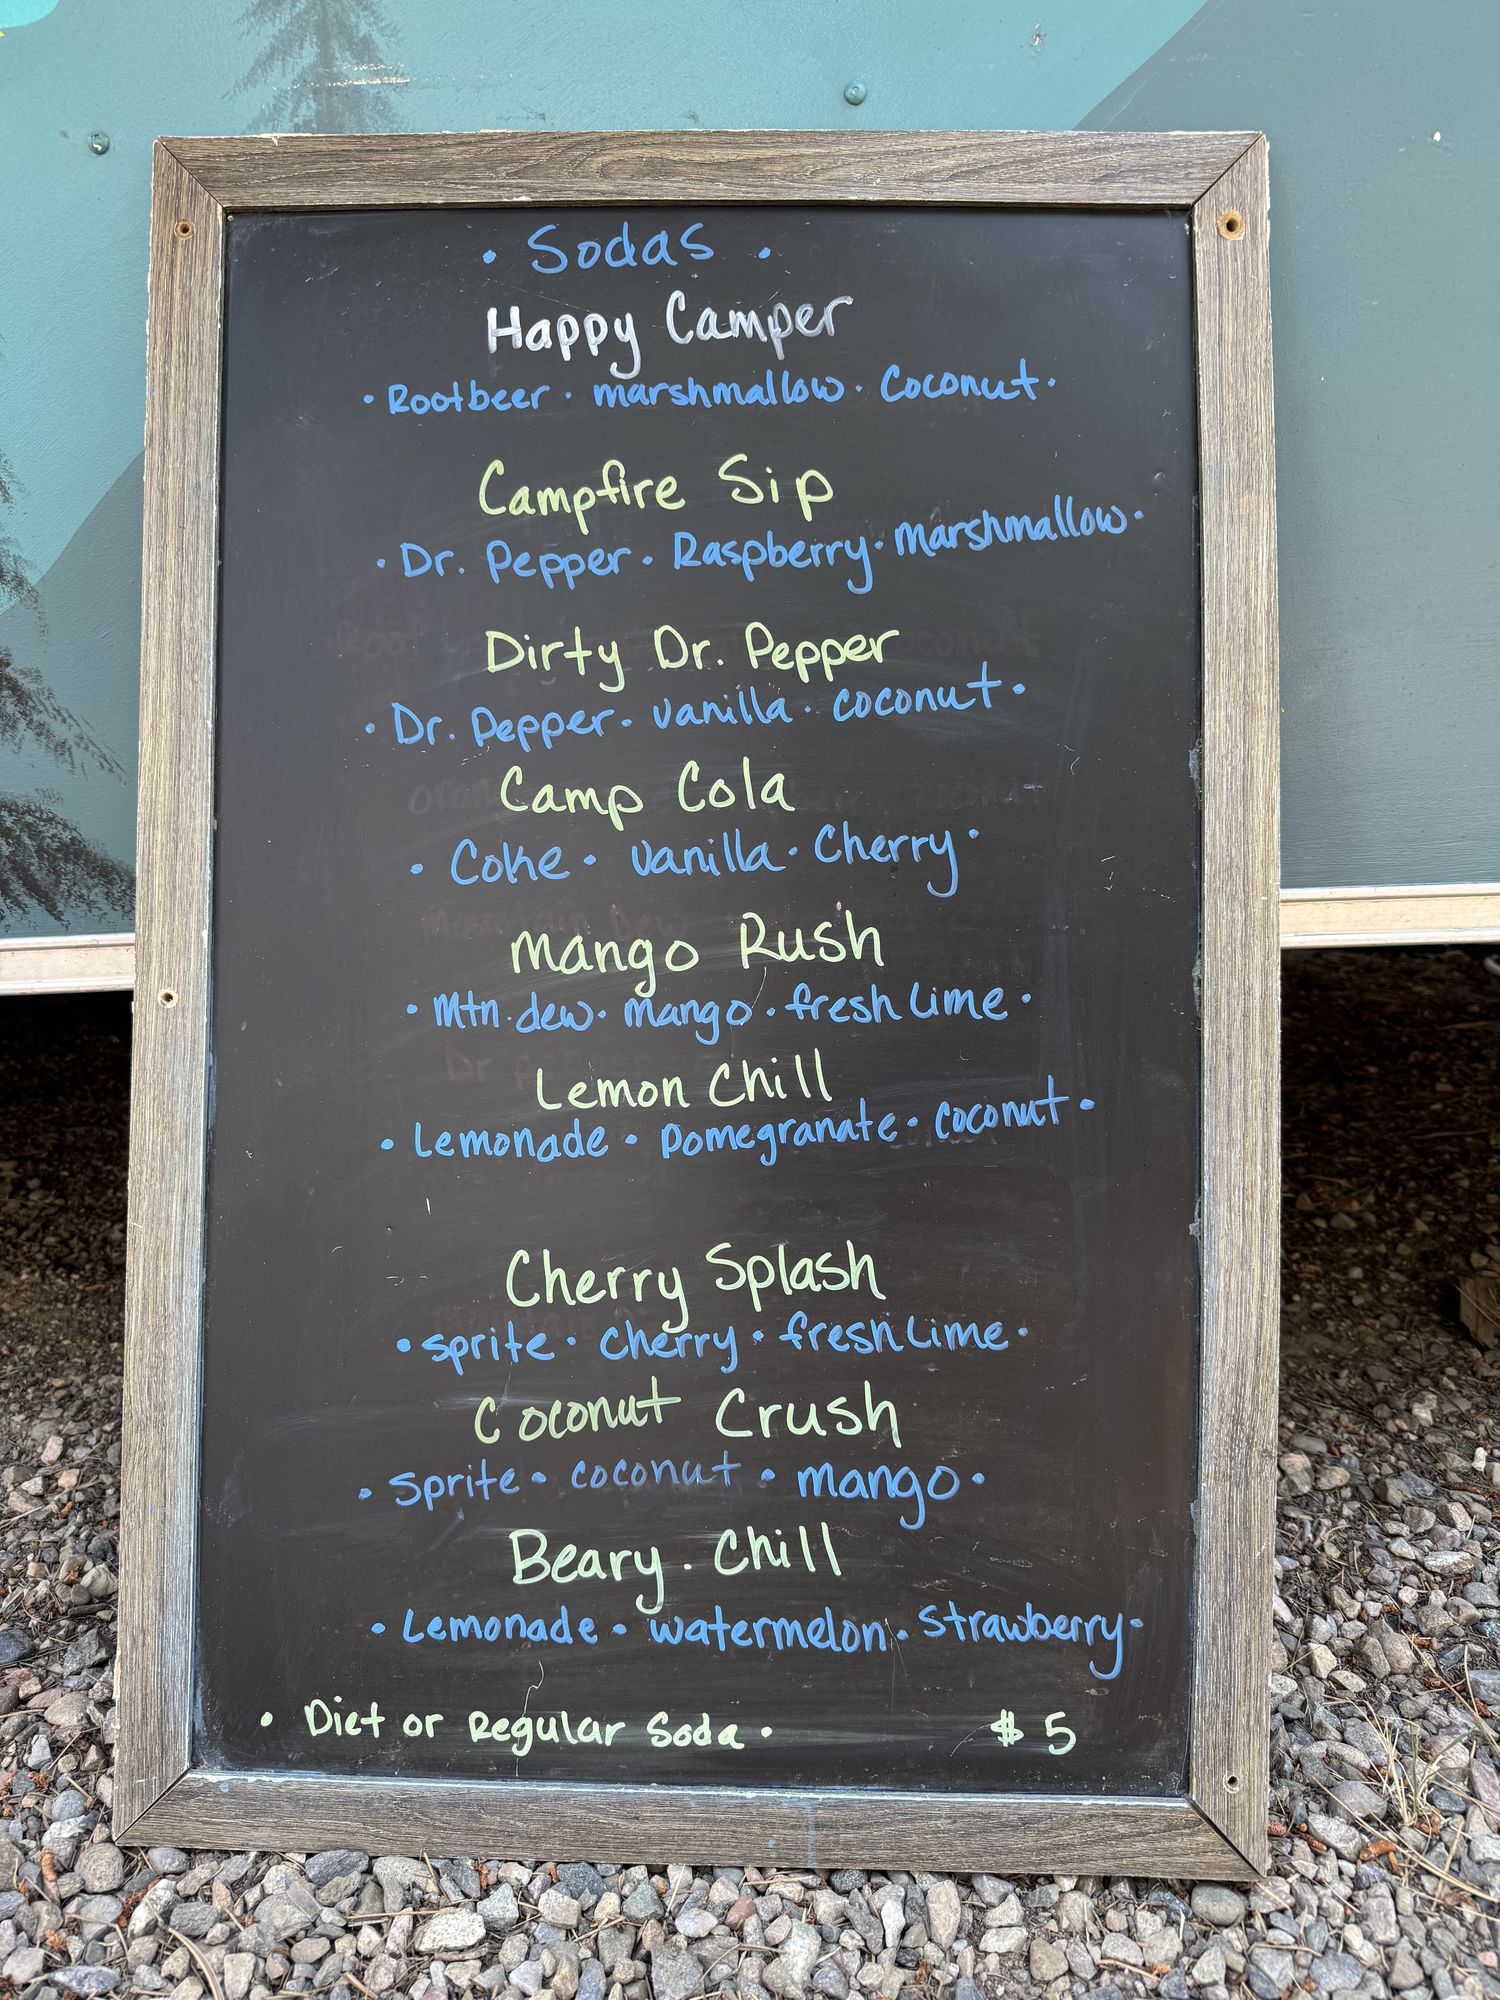 · Sodas ·
Happy Camper
· Rootbeer · marshmallow · Coconut ·
Campfire Sip
· Dr. Pepper · Raspberry · marshmallow ·
Dirty Dr. Pepper
· Dr. Pepper · vanilla · coconut ·
Camp Cola
· Coke · vanilla · Cherry ·
Mango Rush
· Mtn. dew · mango · fresh Lime ·
Lemon Chill
· Lemonade · pomegranate · coconut ·
Cherry Splash
· sprite · cherry · fresh Lime ·
Coconut Crush
· sprite · coconut · mango ·
Beary · Chill
· Lemonade · watermelon · strawberry ·
· Diet or Regular Soda · $5